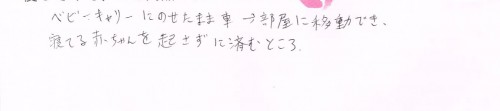 ベビーキャリーにのせたまま車→部屋に移動でき、
寝てる赤ちゃんを起さずに済むところ.